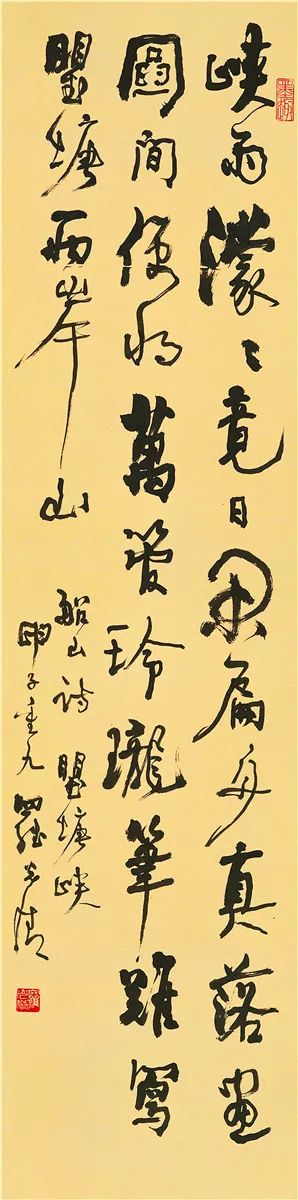 峽雨濛〻竟日閒扁舟真落畫
圖間便將萬管玲瓏筆難寫
瞿塘兩岸山
船山詩 瞿塘峽
甲子重九 羅